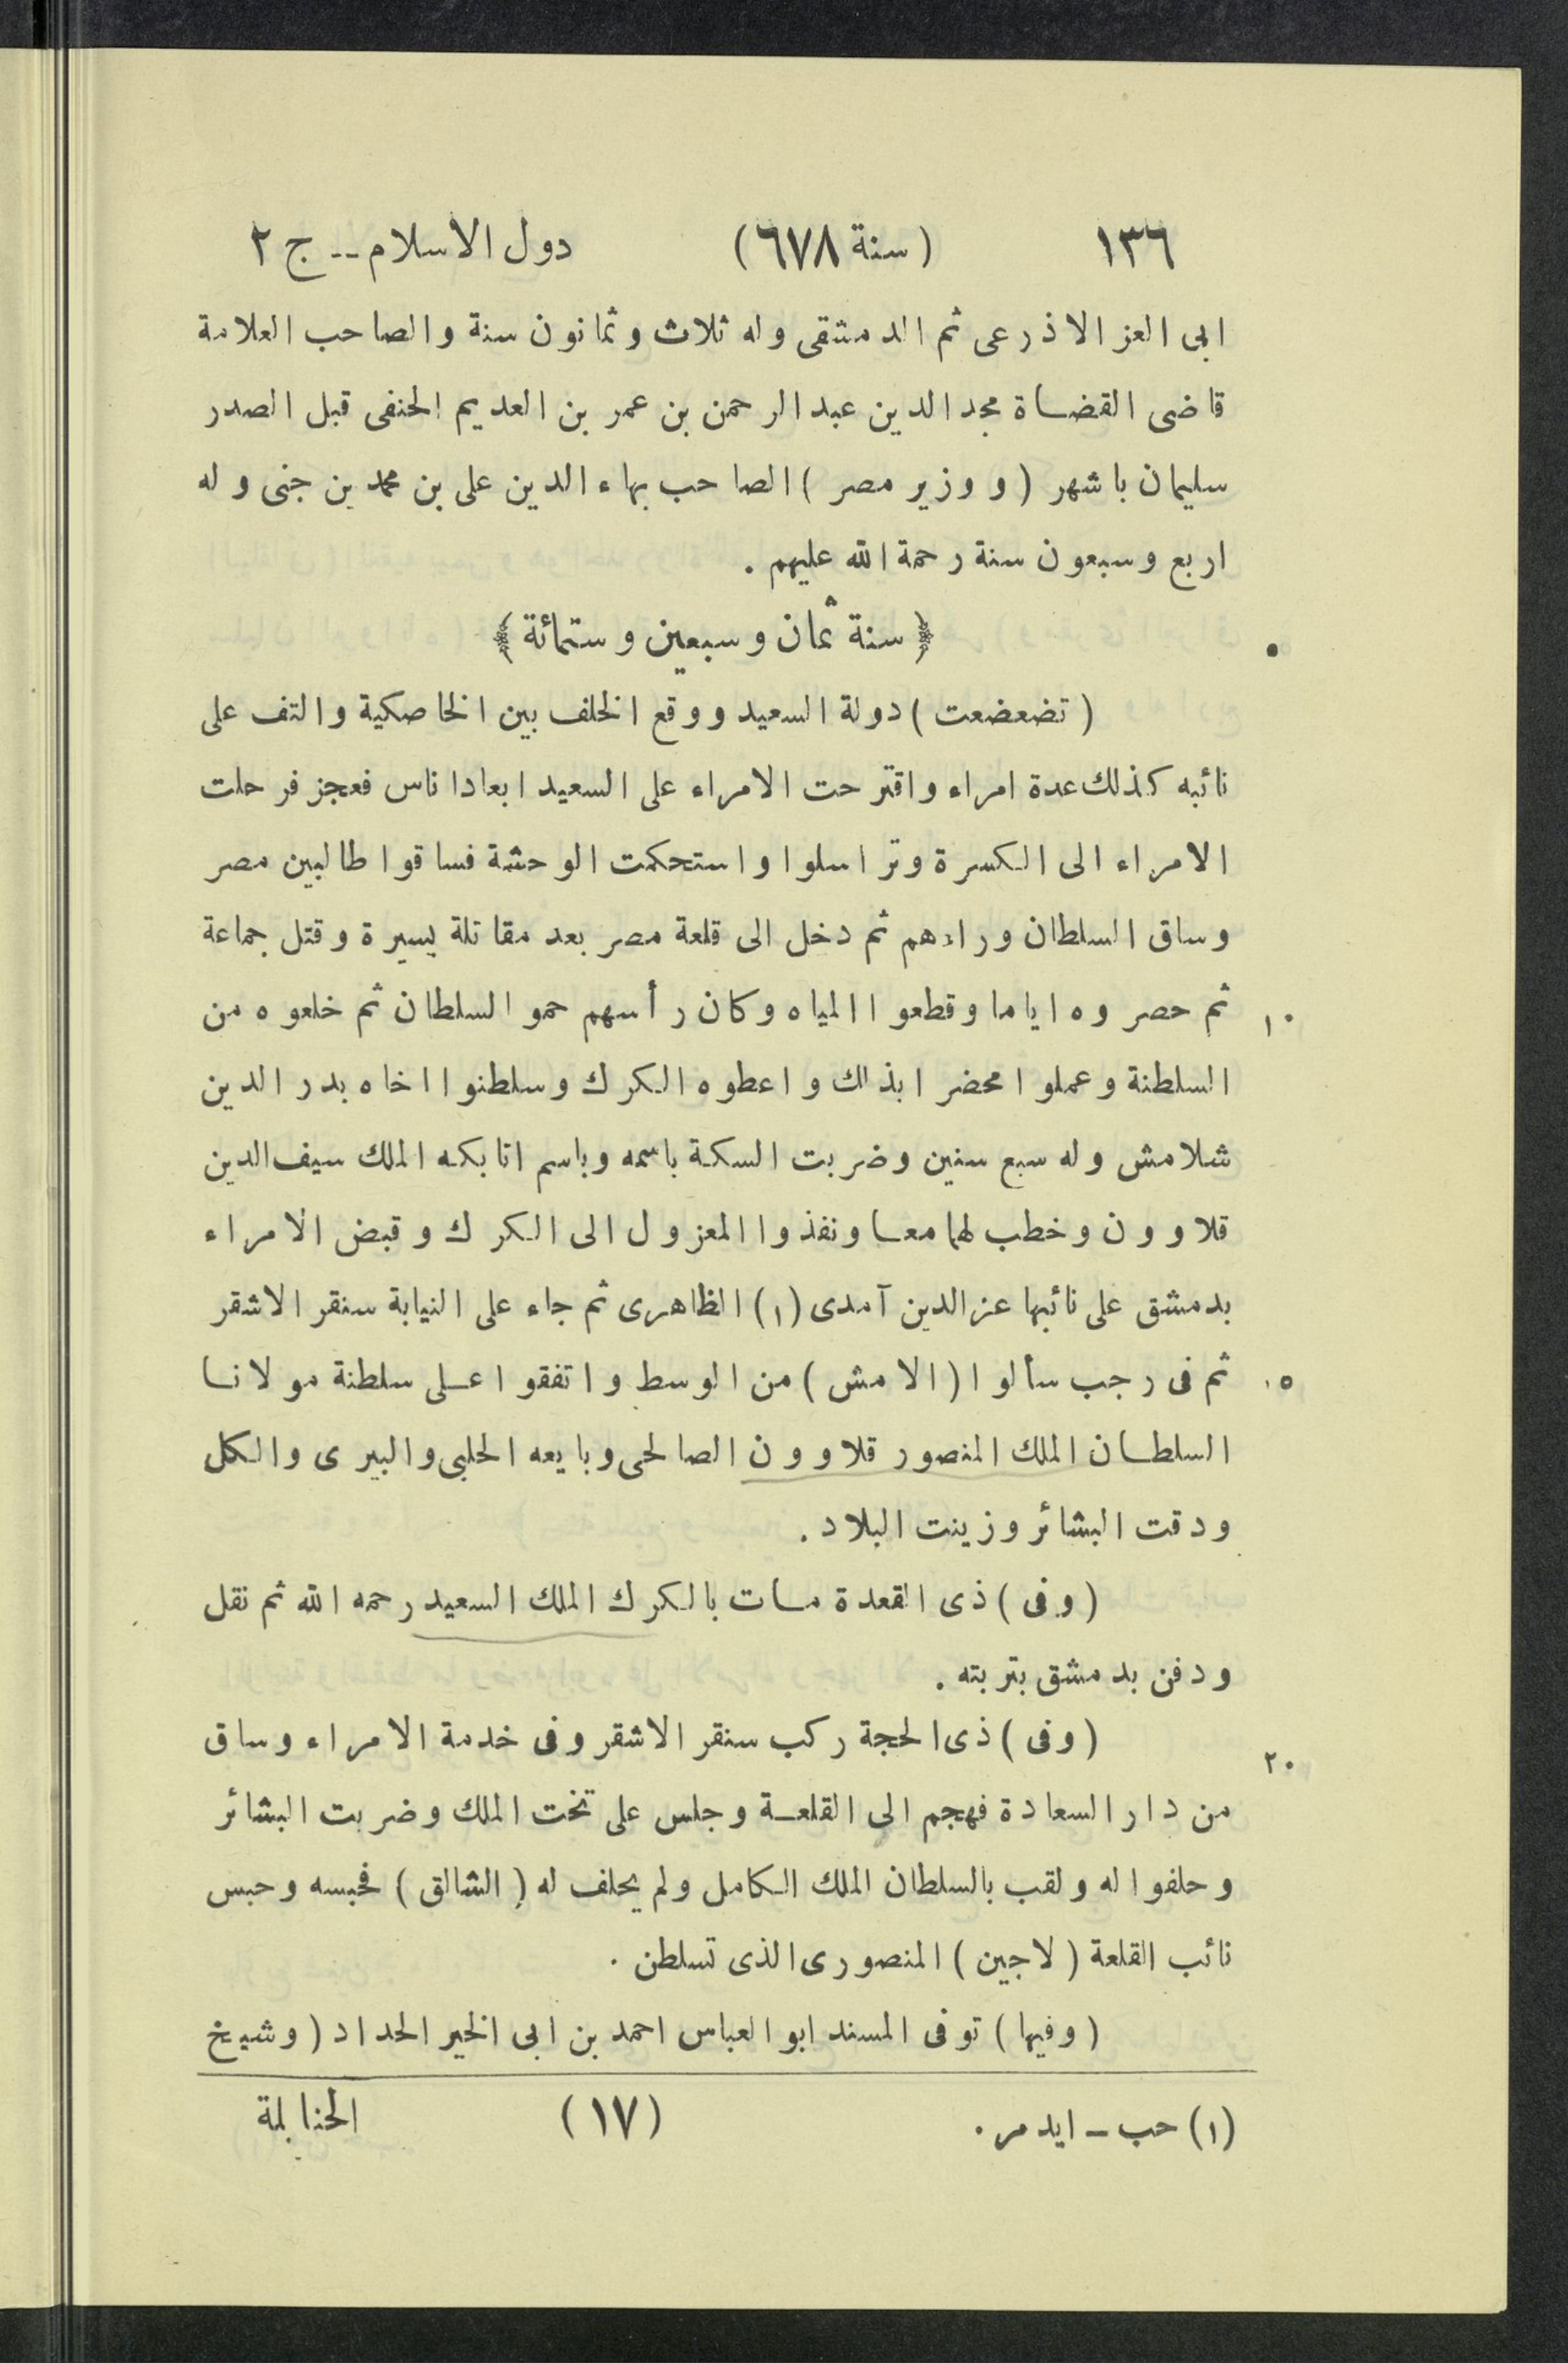 ١٣٦ (سنة ٦٧٨) دول الاسلام -- ج ٢
ابى العز الاذرعى ثم الدمشقى وله ثلاث وثمانون سنة والصاحب العلامة
قاضى القضاة مجد الدين عبد الرحمن بن عمر بن العديم الحنفى قبل الصدر
سليمان باشهر (ووزير مصر) الصاحب بهاء الدين على بن محمد بن جنى وله
اربع وسبعون سنة رحمة الله عليهم .
﴿ سنة ثمان وسبعين وستمائة ﴾ ٥
(تضعضعت) دولة السعيد ووقع الخلف بين الخاصكية والتف على
نائبه كذلك عدة امراء واقترحت الامراء على السعيد ابعادا ناس فعجز فرحلت
الامراء الى الكسرة وتراسلوا واستحكمت الوحشة فساقوا طالبين مصر
وساق السلطان وراءهم ثم دخل الى قلعة مصر بعد مقاتلة يسيرة وقتل جماعة
ثم حصروه اياما وقطعوا المياه وكان رأسهم حمو السلطان ثم خلعوه من ١٠
السلطنة وعملوا محضرا بذلك واعطوه الكرك وسلطنوا اخاه بدر الدين
شلامش وله سبع سنين وضربت السكة باسمه وباسم اتابكه الملك سيف الدين
قلاوون وخطب لهما معا ونفذوا المعزول الى الكرك وقبض الامراء
بدمشق على نائبها عز الدين آمدى (١) الظاهرى ثم جاء على النيابة سنقر الاشقر
ثم فى رجب سألوا (الامش) من الوسط واتفقوا على سلطنة مولانا ١٥
السلطان الملك المنصور قلاوون الصالحى وبايعه الحلبى والبيرى والكل
ودقت البشائر وزينت البلاد .
(وفى) ذى القعدة مات بالكرك الملك السعيد رحمه الله ثم نقل
ودفن بدمشق بتربته .
(وفى) ذى الحجة ركب سنقر الاشقر وفى خدمة الامراء وساق ٢٠
من دار السعادة فهجم الى القلعة وجلس على تخت الملك وضربت البشائر
وحلفوا له ولقب بالسلطان الملك الكامل ولم يحلف له (الشالق) فحبسه وحبس
نائب القلعة (لاجين) المنصورى الذى تسلطن .
(وفيها) توفى المسند ابو العباس احمد بن ابى الخير الحداد (وشيخ
(١) حب - ايدمر . (١٧) الحنابلة